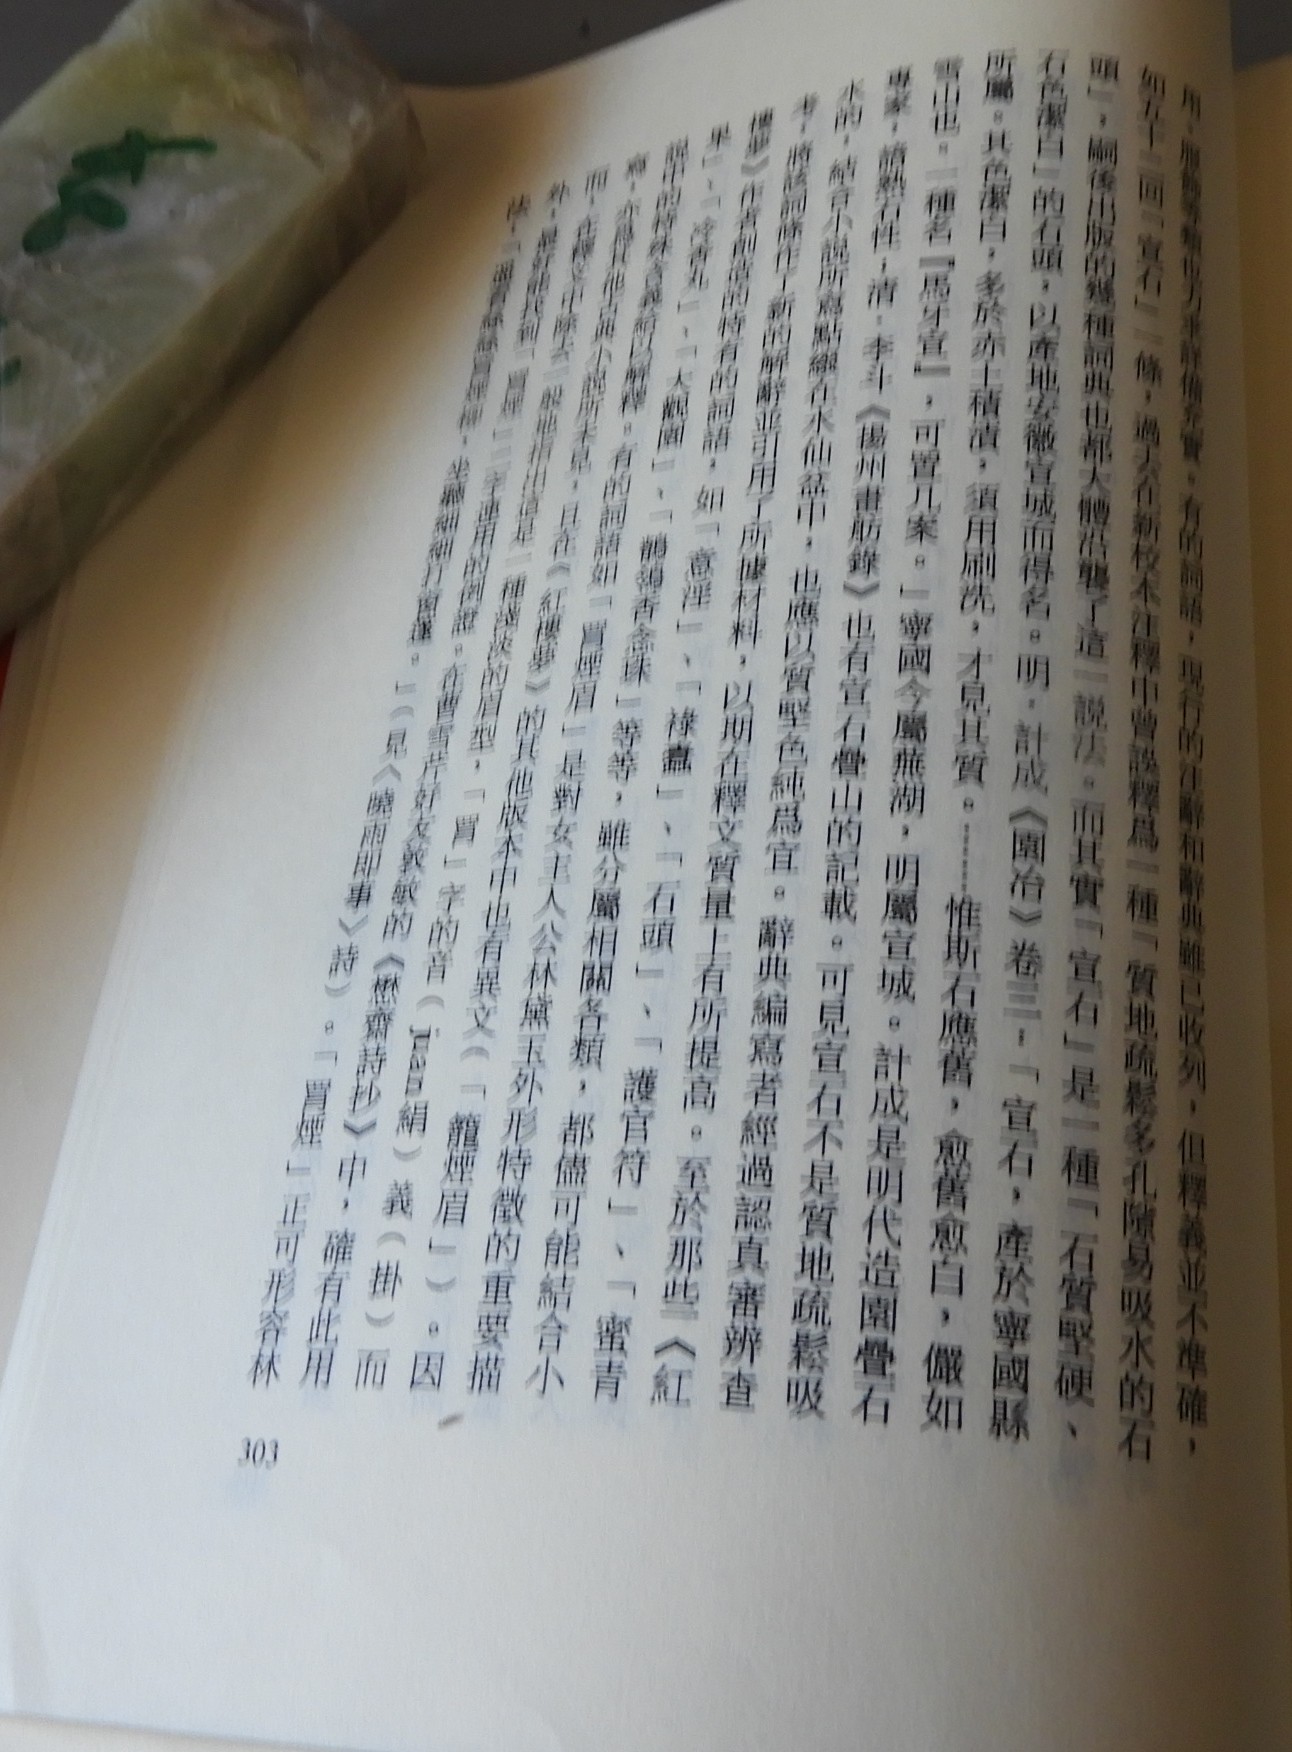 用、服飾等類也力求詳備充實。有的詞語，現行的注辭和辭典雖已收列，但釋義並不準確，
如五十三回「宣石」一條，過去在新校本注釋中曾誤釋爲一種「質地疏鬆多孔隙易吸水的石
頭」，嗣後出版的幾種詞典也都大體沿襲了這一説法。而其實「宣石」是一種「石質堅硬、
石色潔白」的石頭，以產地安徽宣城而得名。明．計成《園冶》卷三：「宣石，產於寧國縣
所屬。其色潔白，多於赤土積漬，須用刷洗，才見其質。……惟斯石應舊，愈舊愈白，儼如
雪山也。一種名『馬牙宣』，可置几案。」寧國今屬蕪湖，明屬宣城。計成是明代造園疊石
專家，諳熟石性，清．李斗《揚州畫舫錄》也有宣石疊山的記載。可見宣石不是質地疏鬆吸
水的，結合小説所寫點綴在水仙盆中，也應以質堅色純爲宜。辭典編寫者經過認真審辨查
考，將該詞條作了新的解辭並引用了所據材料，以期在釋文質量上有所提高。至於那些《紅
樓夢》作者創造的特有的詞語，如「意淫」、「祿蠹」、「石頭」、「護官符」、「蜜青
果」、「冷香丸」、「大觀園」、「鶺鴒香念珠」等等，雖分屬相關各類，都儘可能結合小
説中的特殊含義給以解釋。有的詞語如「罥煙眉」是對女主人公林黛玉外形特徵的重要描
寫，亦爲其他古典小説所未見，且在《紅樓夢》的其他版本中也有異文（「籠煙眉」）。因
而，在釋文中除去一般地指出這是一種淺淡的眉型，「罥」字的音（juan絹）義（掛）而
外，最好能找到「罥煙」二字連用的例證。在曹雪芹好友敦敏的《懋齋詩抄》中，確有此用
法，「遠看絲絲罥煙柳，坐聽細細打窗蓬。」（見〈曉雨即事〉詩）。「罥煙」正可形容林
303